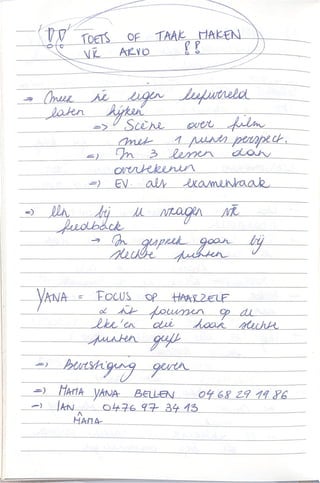 !! TOETS OF TAAK MAKEN
VR ARVO !!
→ Meer hé eigen leefwereld
laten kijken
=> Scène over film
met 1 punts perspect.
=) In 3 lessen dan
overtekenen
=) EV als examentaak
=) lln bij u vragen vr
feedback
→ In gesprek gaan bij
slechte punten
YANA = FOCUS OP HAARZELF
& nt focussen op de
lkr'en die haar slechte
punten geeft
=) Bevestiging geven
=) MAMA YANA BELLEN 04 68 29 19 86
=) IAN 0476 97 34 13
MAMA